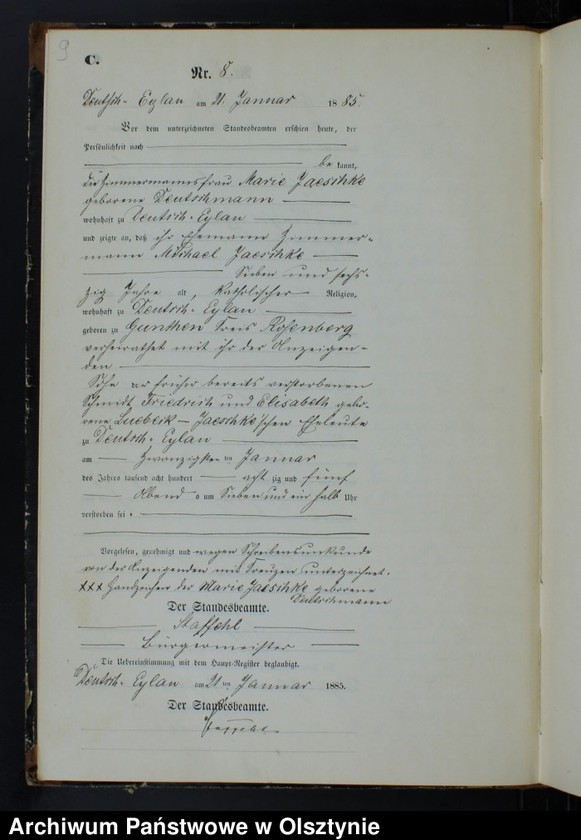 9
C.
Nr. 8.
Deutsch-Eylau am 21. Januar 1885.
Vor dem unterzeichneten Standesbeamten erschien heute, der
Persönlichkeit nach
be kannt,
die Zimmermannsfrau Marie Jaeschke
geborene Deutschmann
wohnhaft zu Deutsch-Eylau
und zeigte an, daß ihr Ehemann Zimmer-
mann Michael Jaeschke
Sieben und sech-
zig Jahre alt, katholischer Religion,
wohnhaft zu Deutsch-Eylau
geboren zu Gunthen Kreis Rosenberg
verheirathet mit ihr der Anzeigen-
den
Sohn der früher bereits verstorbenen
Schmidt Friedrich und Elisabeth gebo-
rene Jaeschke'schen Eheleute
zu Deutsch-Eylau
am Zwanzigsten Januar
des Jahres tausend acht hundert acht zig und fünf
Abend s um Sieben und ein halb Uhr
verstorben sei.
Vorgelesen, genehmigt und wegen Schreibensunkunde
von der Anzeigenden mit Kreuzen unterzeichnet.
XXX Handzeichen der Marie Jaeschke geborene
Deutschmann
Der Standesbeamte.
Staffehl
Bürgermeister
Die Uebereinstimmung mit dem Haupt-Register beglaubigt.
Deutsch-Eylau am 21 ten Januar 1885.
Der Standesbeamte.
Staffehl
Archiwum Państwowe w Olsztynie